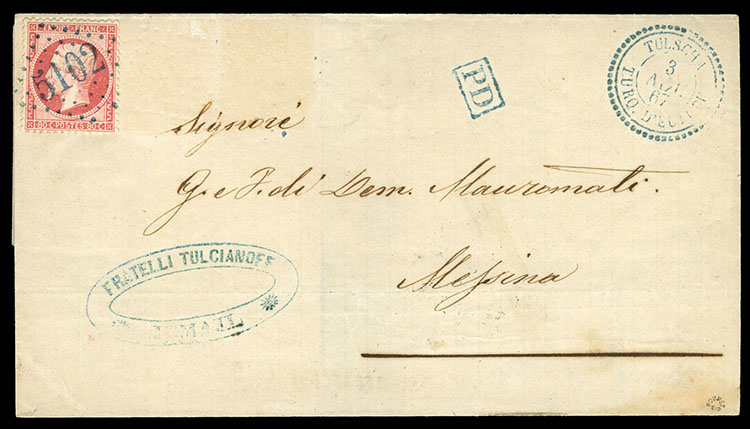 EMPIRE FRANC
5102
80 C POSTES 80 C
PD
TULSCHA
3
67
TURQ. D'EUROPE
Signori
G. e F. di Dem. Mauromati.
Messina
FRATELLI TULCIANOFF
ISMAIL